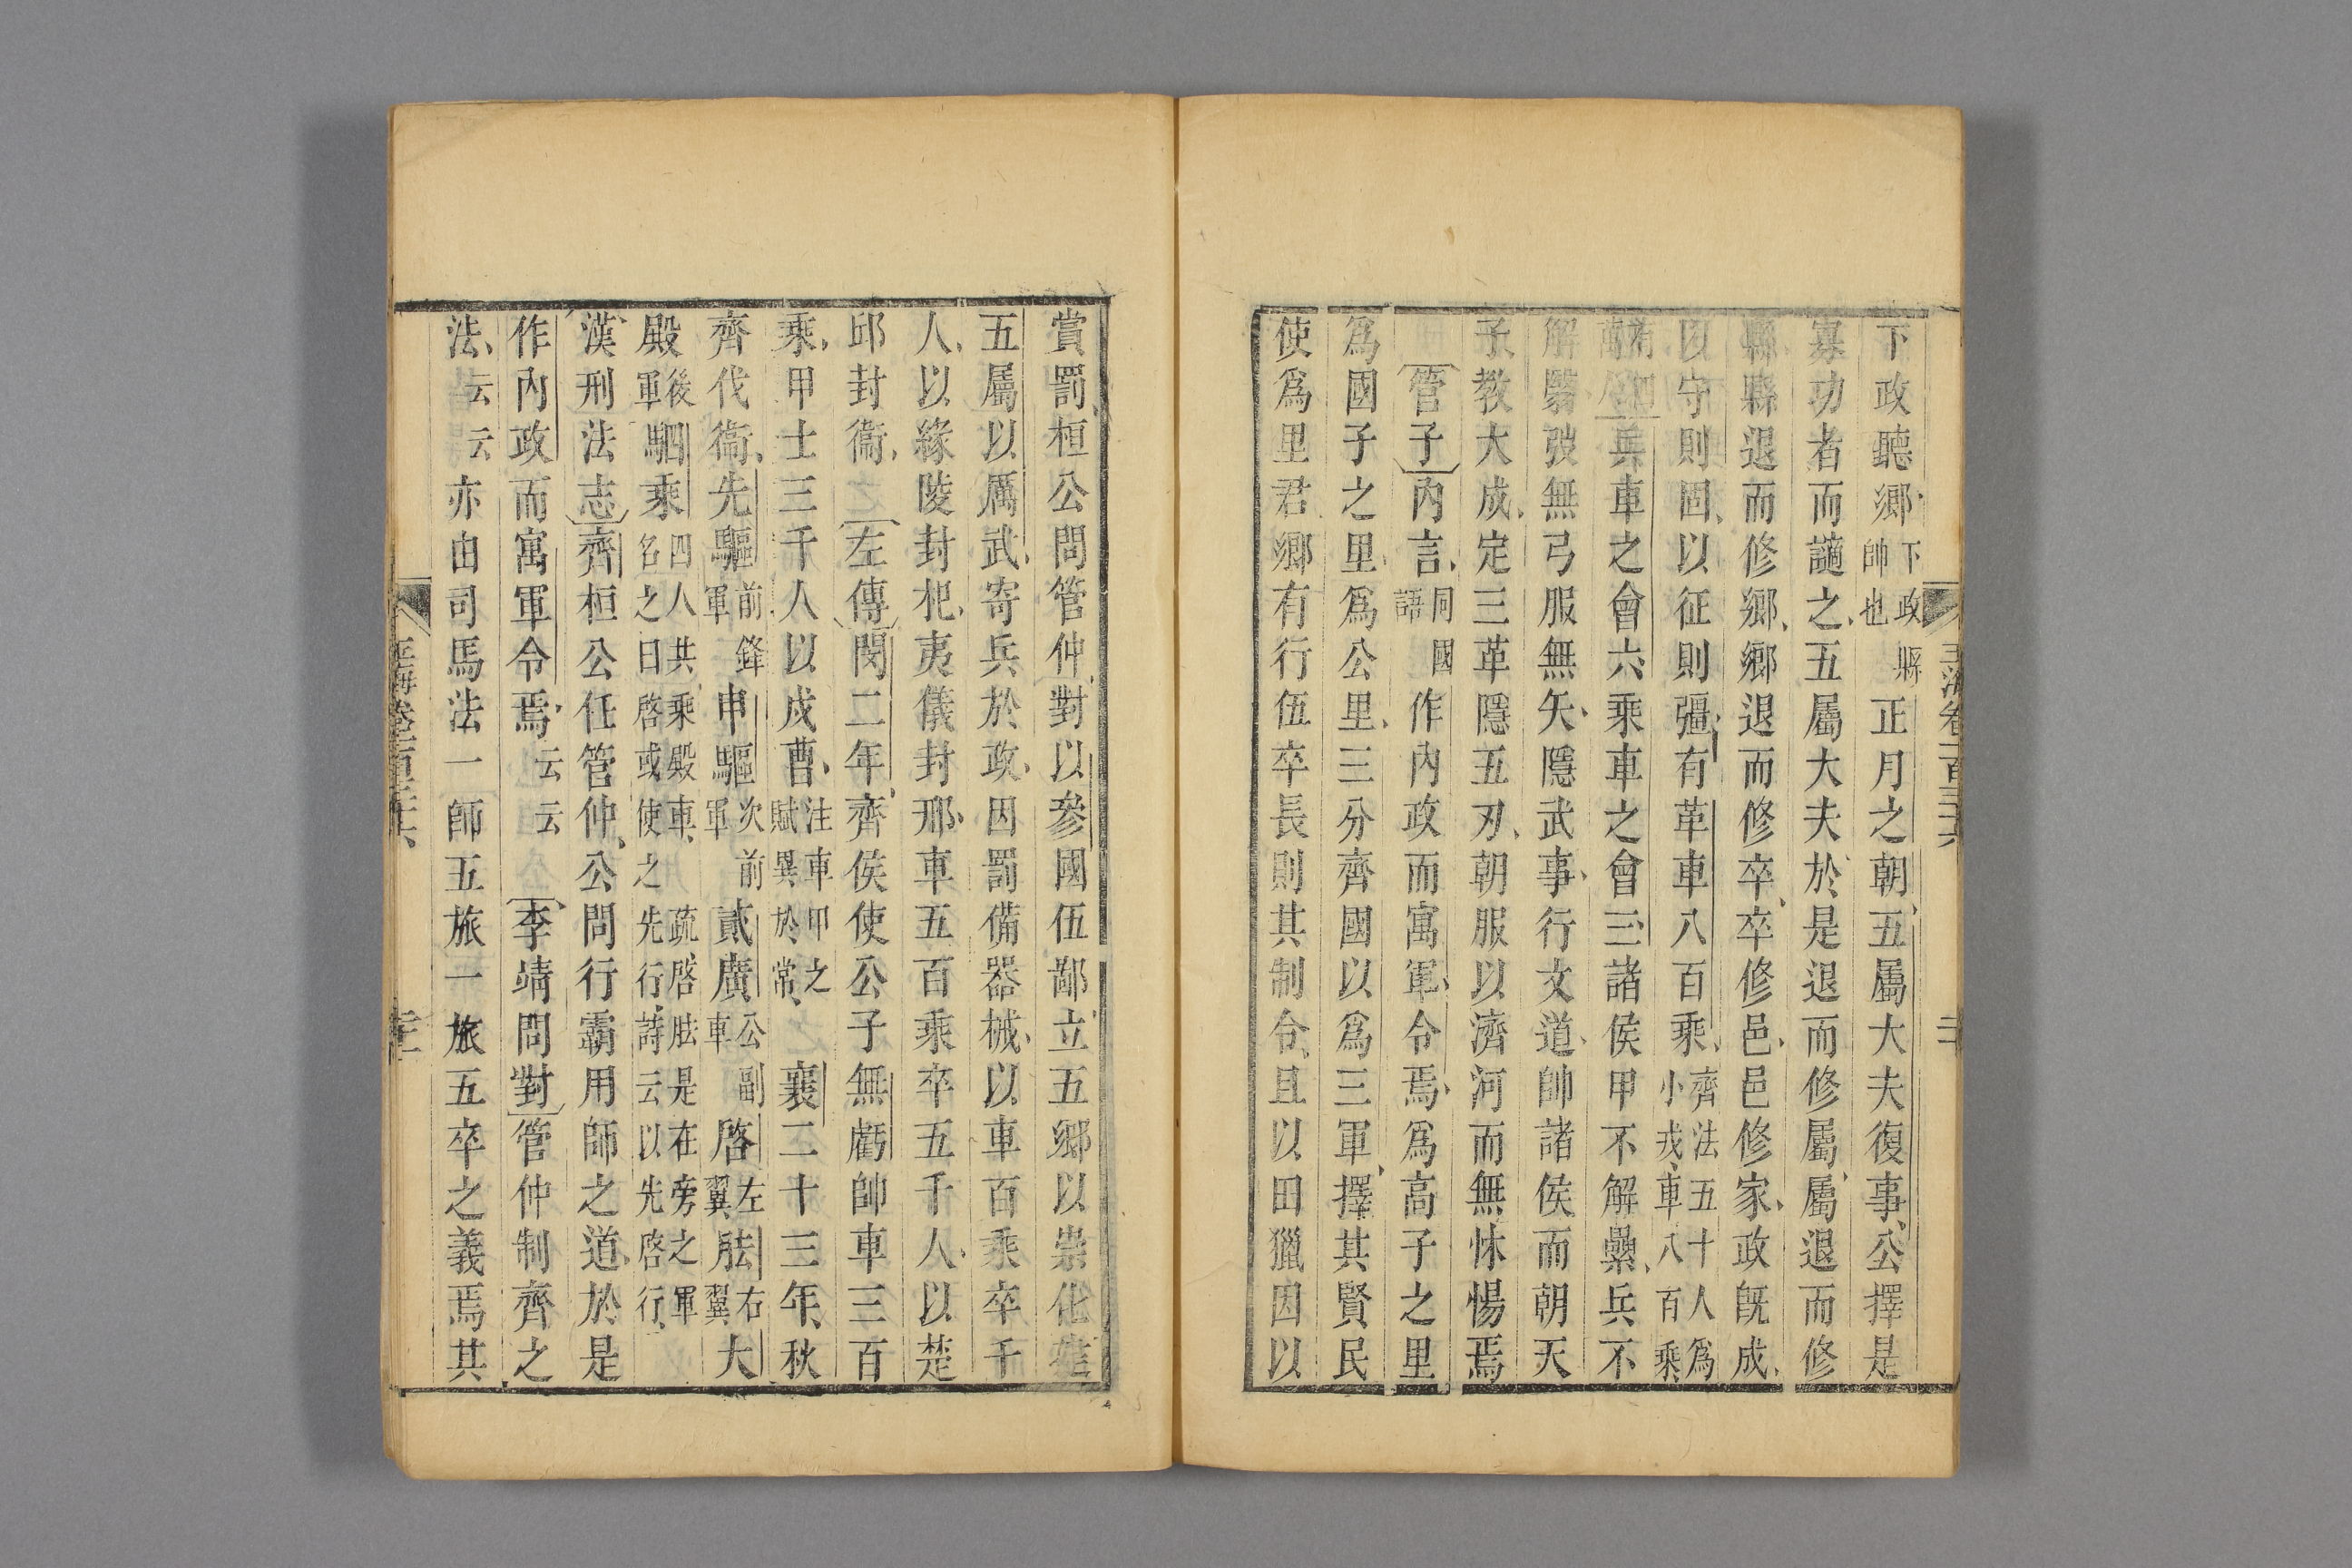 下政聽鄉下政縣帥也正月之朝五屬大夫復事公擇是
寡功者而讁之五屬大夫於是退而修屬屬退而修
縣縣退而修鄉鄉退而修卒卒修邑邑修家政旣成
以守則固以征則彊有革車八百乘齊法五十人爲小戎車八百乘
兵車之會六乘車之會三諸侯甲不解纍兵不
解翳弢無弓服無矢隱武事行文道帥諸侯而朝天
子教大成定三革隱五刃朝服以濟河而無怵惕焉
管子內言同國語作內政而寓軍令焉爲高子之里
爲國子之里爲公里三分齊國以爲三軍擇其賢民
使爲里君鄉有行伍卒長則其制令且以田獵因以
賞罰桓公問管仲對以參國伍鄙立五鄉以崇化建
五屬以厲武寄兵於政因罰備器械以車百乘卒千
人以緣陵封杞夷儀封邢車五百乘卒五千人以楚
邱封衞左傳閔二年齊侯使公子無虧帥車三百
乘甲士三千人以戍曹注車甲之賦異於常襄二十三年秋
齊代衞先驅前鋒軍申驅次前軍貳廣公副車啓左翼胠右翼大
殿後軍駟乘四人共乘殿車名之曰啓或使之疏啓胠是在旁之軍先行詩云以先啓行
漢刑法志齊桓公任管仲公問行霸用師之道於是
作內政而寓軍令焉云云李靖問對管仲制齊之
法云云亦由司馬法一師五旅一旅五卒之義焉其